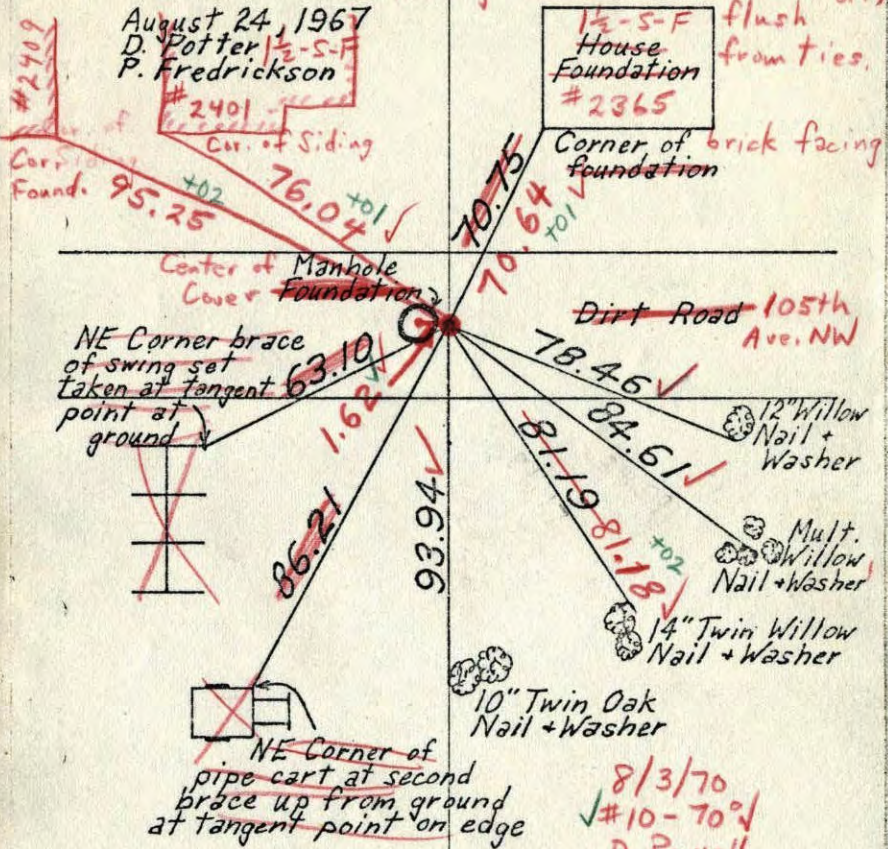 August 24, 1967
D. Potter
P. Fredrickson
1½-S-F
#2401
#2409
1½-S-F
House
Foundation
#2365
flush
from ties.
Cor. of Siding
Cor. Siding
Found.
Corner of brick facing
foundation
95.25
+02
76.04
+01 ✓
70.75
70.64
+01 ✓
Center of Manhole
Cover Foundation
Dirt Road 105th
Ave. NW
NE Corner brace
of swing set
taken at tangent
point at
ground
63.10
1.62 ✓
78.46 ✓
84.61 ✓
81.19
81.18 ✓
+02
93.94 ✓
86.21
12" Willow
Nail +
Washer
Mult.
Willow
Nail + Washer
14" Twin Willow
Nail + Washer
10" Twin Oak
Nail + Washer
NE Corner of
pipe cart at second
brace up from ground
at tangent point on edge
8/3/70
✓#10-70° ✓